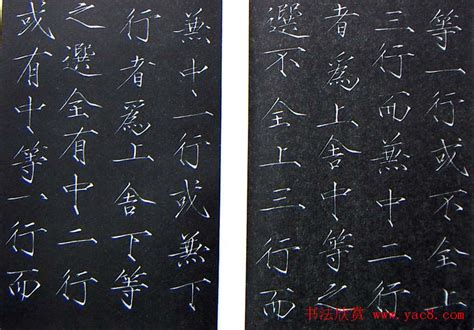 等一行或不全
三行而兼中二行
者爲上舍中等之
選不全上三行
兼中一行或兼下
行者爲上舍下等
之選全有中二行
或有中等一行而
书法欣赏 www.yac8.com